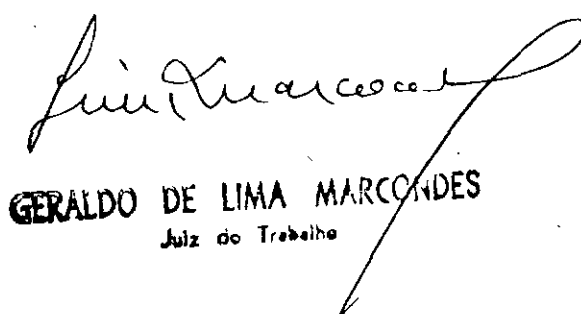 GERALDO DE LIMA MARCONDES
Juiz do Trabalho